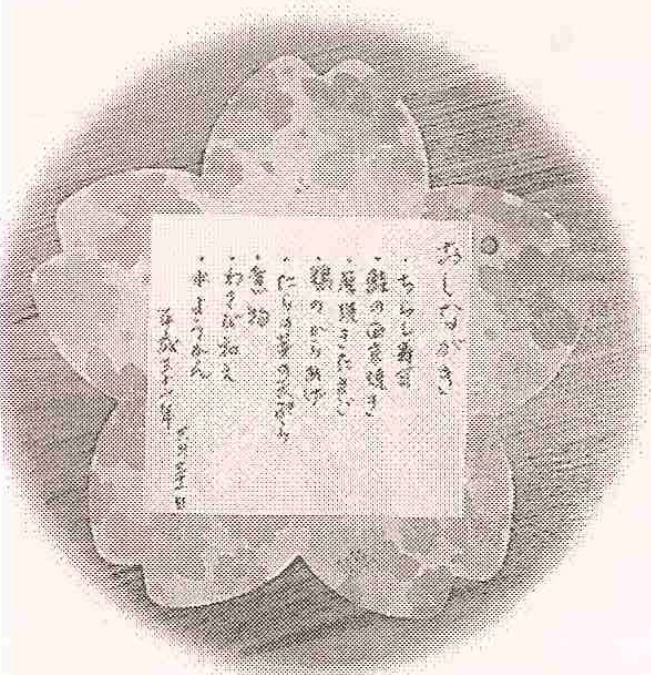 おしながき
・ちらし寿司
・鮭の西京焼き
・厚焼きたまご
・鶏のからあげ
・たらの芽の天ぷら
・煮物
・わさび和え
・水ようかん
平成二十六年